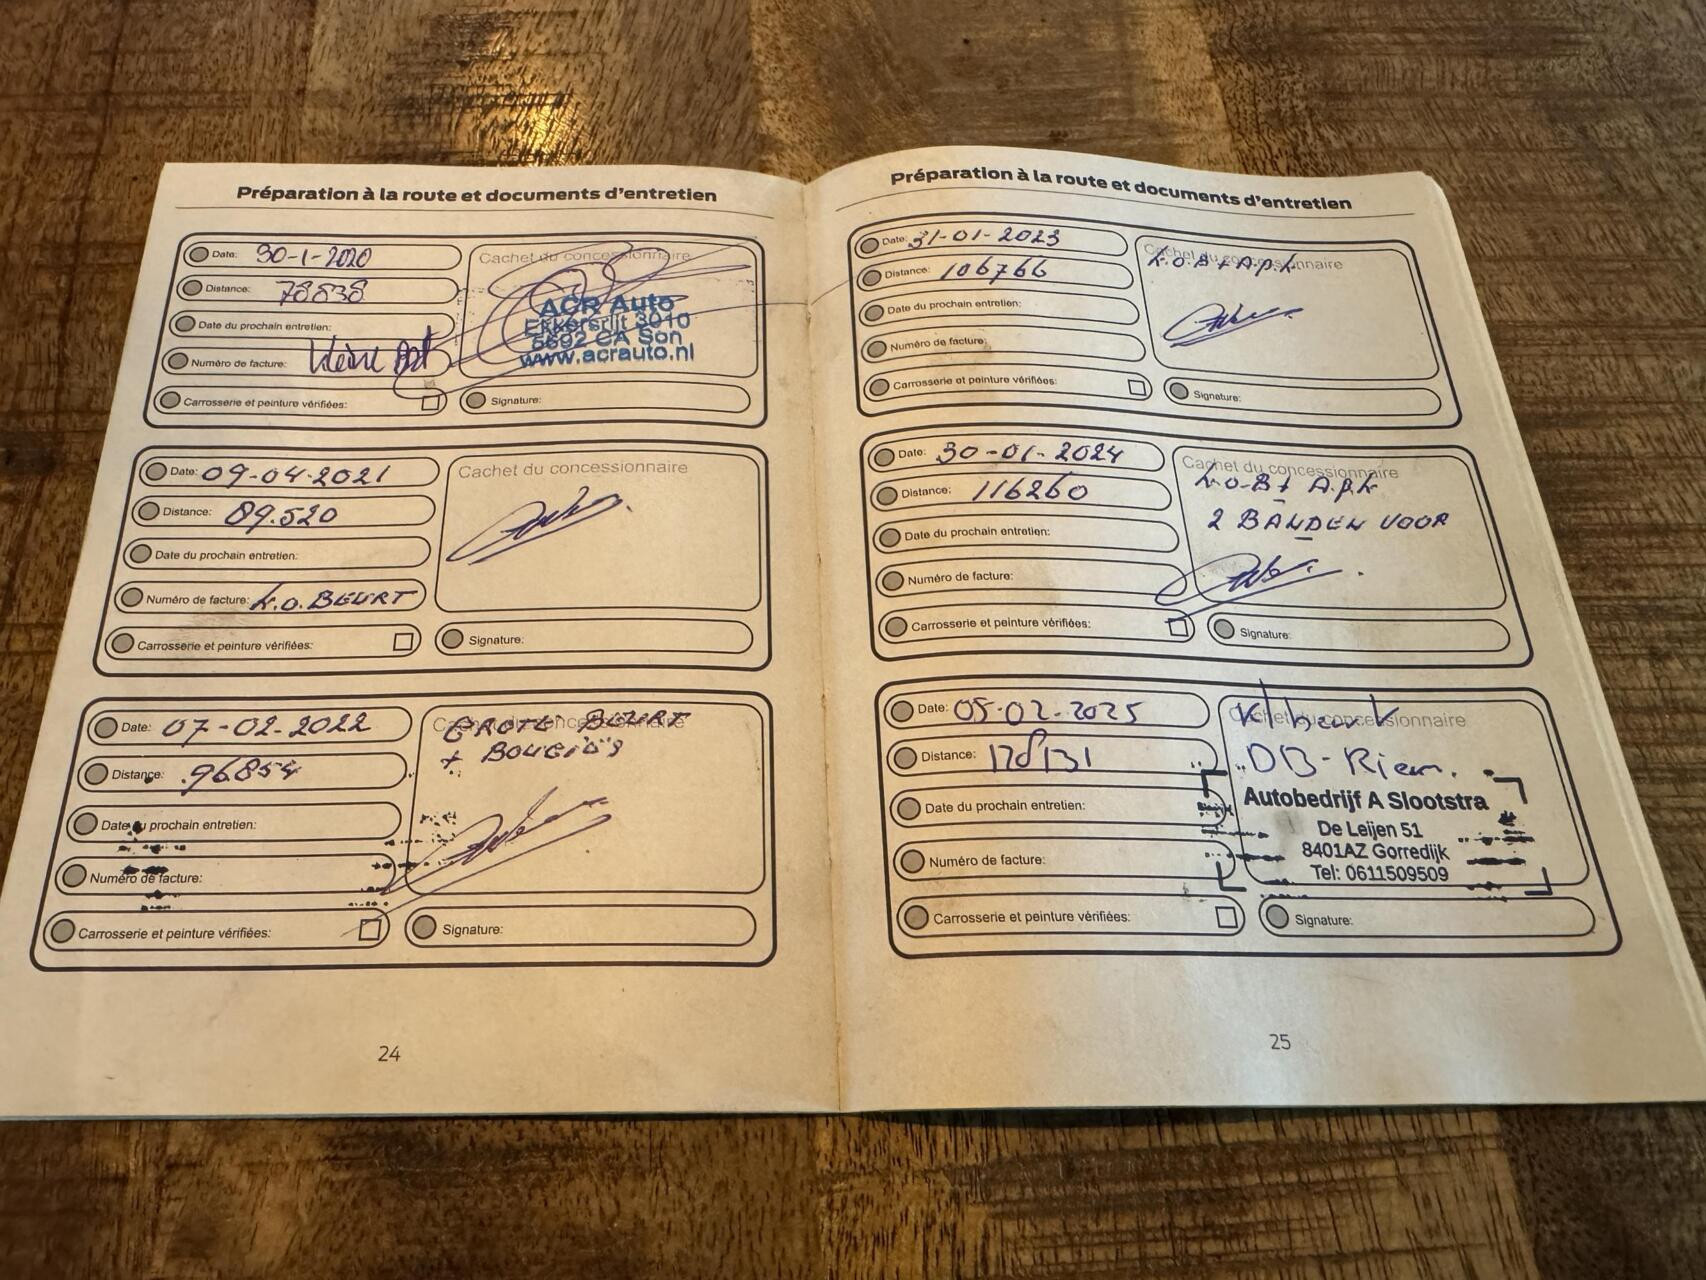 Préparation à la route et documents d'entretien
Date: 30-1-2020
Distance: 78838
Date du prochain entretien:
Numéro de facture: kleine
Carrosserie et peinture vérifiées:
Cachet du concessionnaire
ACR Auto
Ekkersrijt 3010
5692 CA Son
www.acrauto.nl
Signature:
Date: 09-04-2021
Distance: 89.520
Date du prochain entretien:
Numéro de facture: k.o. BEURT
Carrosserie et peinture vérifiées:
Cachet du concessionnaire
Signature:
Date: 07-02-2022
Distance: 96854
Date du prochain entretien:
Numéro de facture:
Carrosserie et peinture vérifiées:
Cachet du concessionnaire
GROTE BEURT
+ BOUGIE'S
Signature:
24
Préparation à la route et documents d'entretien
Date: 31-01-2023
Distance: 106766
Date du prochain entretien:
Numéro de facture:
Carrosserie et peinture vérifiées:
Cachet du concessionnaire
k.o.B + A.p.k
Signature:
Date: 30-01-2024
Distance: 116260
Date du prochain entretien:
Numéro de facture:
Carrosserie et peinture vérifiées:
Cachet du concessionnaire
k.o.B + A.p.k
2 BANDEN VOOR
Signature:
Date: 05-02-2025
Distance:
Date du prochain entretien:
Numéro de facture:
Carrosserie et peinture vérifiées:
Cachet du concessionnaire
DB-Riem.
Autobedrijf A Slootstra
De Leijen 51
8401AZ Gorredijk
Tel: 0611509509
Signature:
25